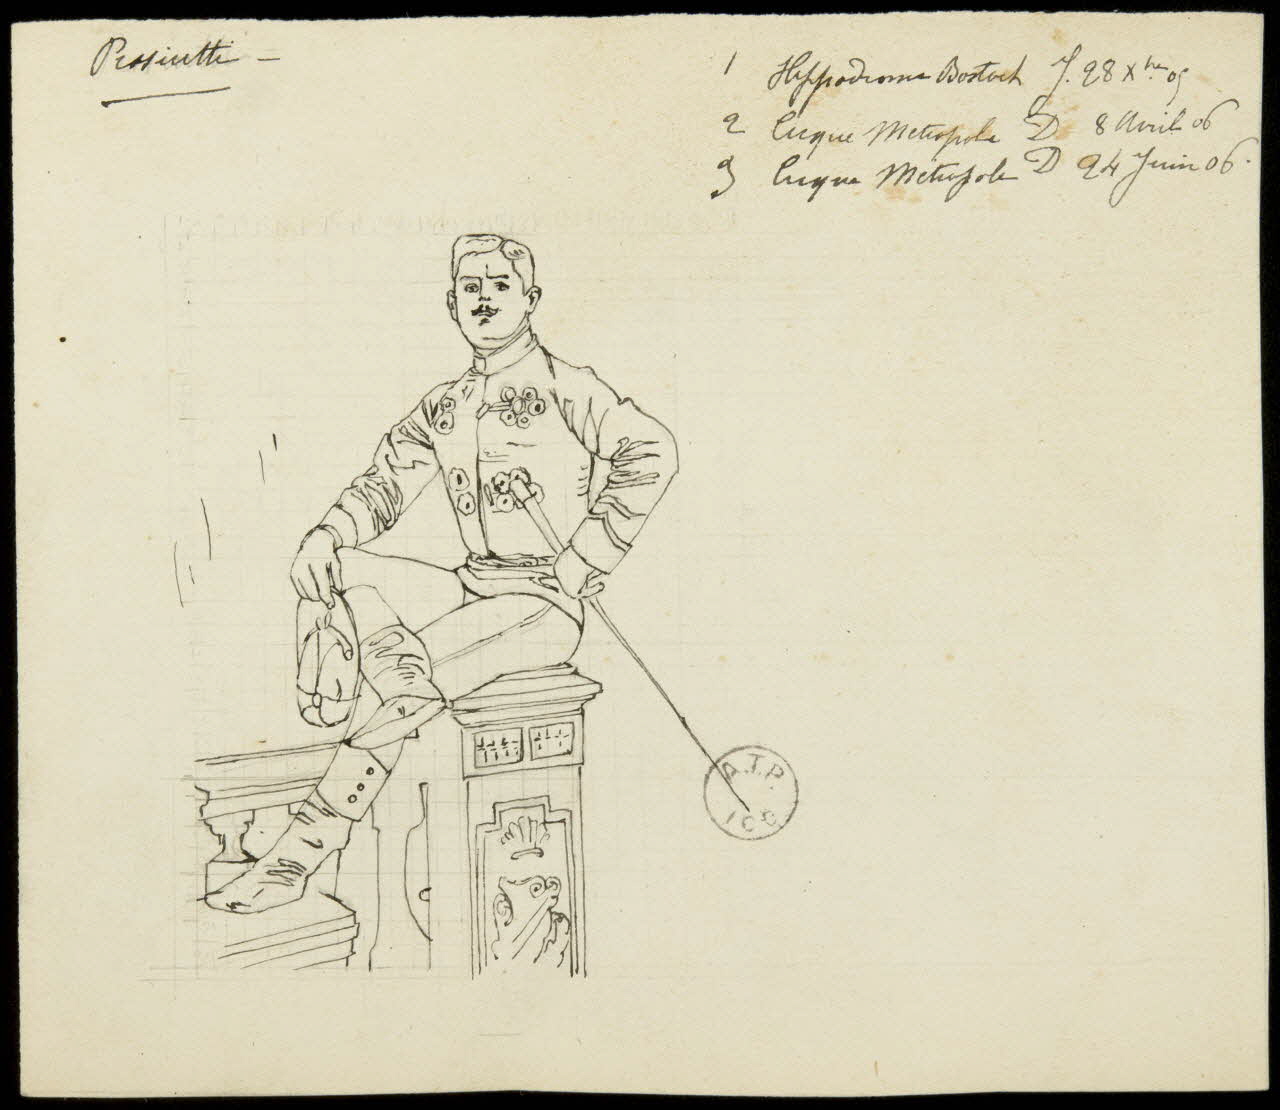 Prosiutti -
1 Hippodrome Bostock J. 28 Xbre 05
2 Cirque Metropole D 8 Avril 06
3 Cirque Metropole D 24 Juin 06.
A.T.P.